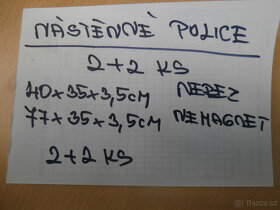 NÁSTĚNNÉ POLICE
2+2 KS
40x35x3,5CM NEREZ
77x35x3,5CM NEMAGNET
2+2 KS
Bazos.cz